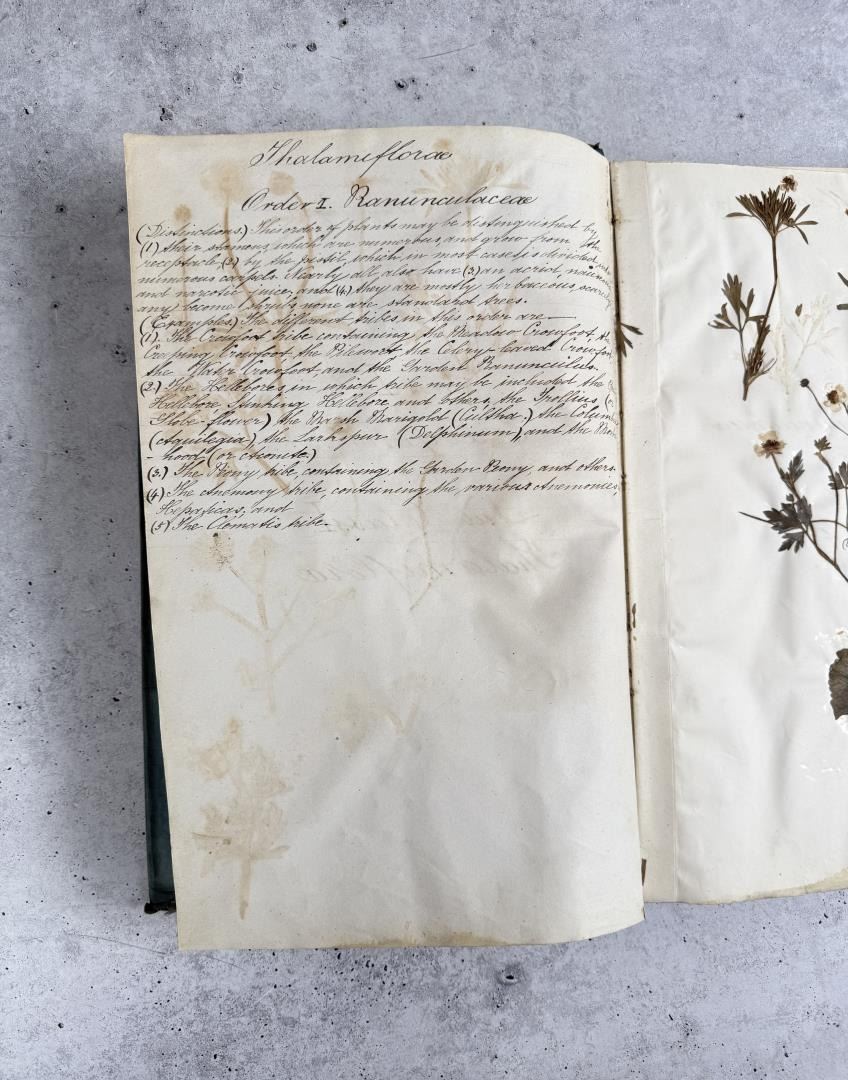 Thalamiflorae
Order I. Ranunculaceae
(Distinctions.) This order of plants may be distinguished by
(1) their stamens, which are numerous and grow from the
receptacle, (2) by the pistil, which, in most cases is divided into
numerous carpels. Nearly all also have (3) an acrid,
and narcotic juice, and (4) they are mostly herbaceous, scarcely
any become shrubs none are standard trees.
(Examples) The different tribes in this order are—
(1). The Crowfoot tribe containing, the Meadow Crowfoot, the
Creeping Crowfoot, the Pilewort, the Celery-leaved Crowfoot
the Water Crowfoot and the Garden Ranunculus.
(2.) The Hellebores, in which tribe may be included the
Hellebore, Stinking Hellebore and others, the Trollius (or
Globe-flower) the Marsh Marigold (Caltha.) the
(Aquilegia), the Larkspur (Delphinum), and the
-hood (or Aconite.)
(3.) The Peony tribe, containing, the Garden Peony and others.
(4.) The Anemony tribe, containing the, various Anemonies,
Hepaticas, and
(5) The Clematis tribe.